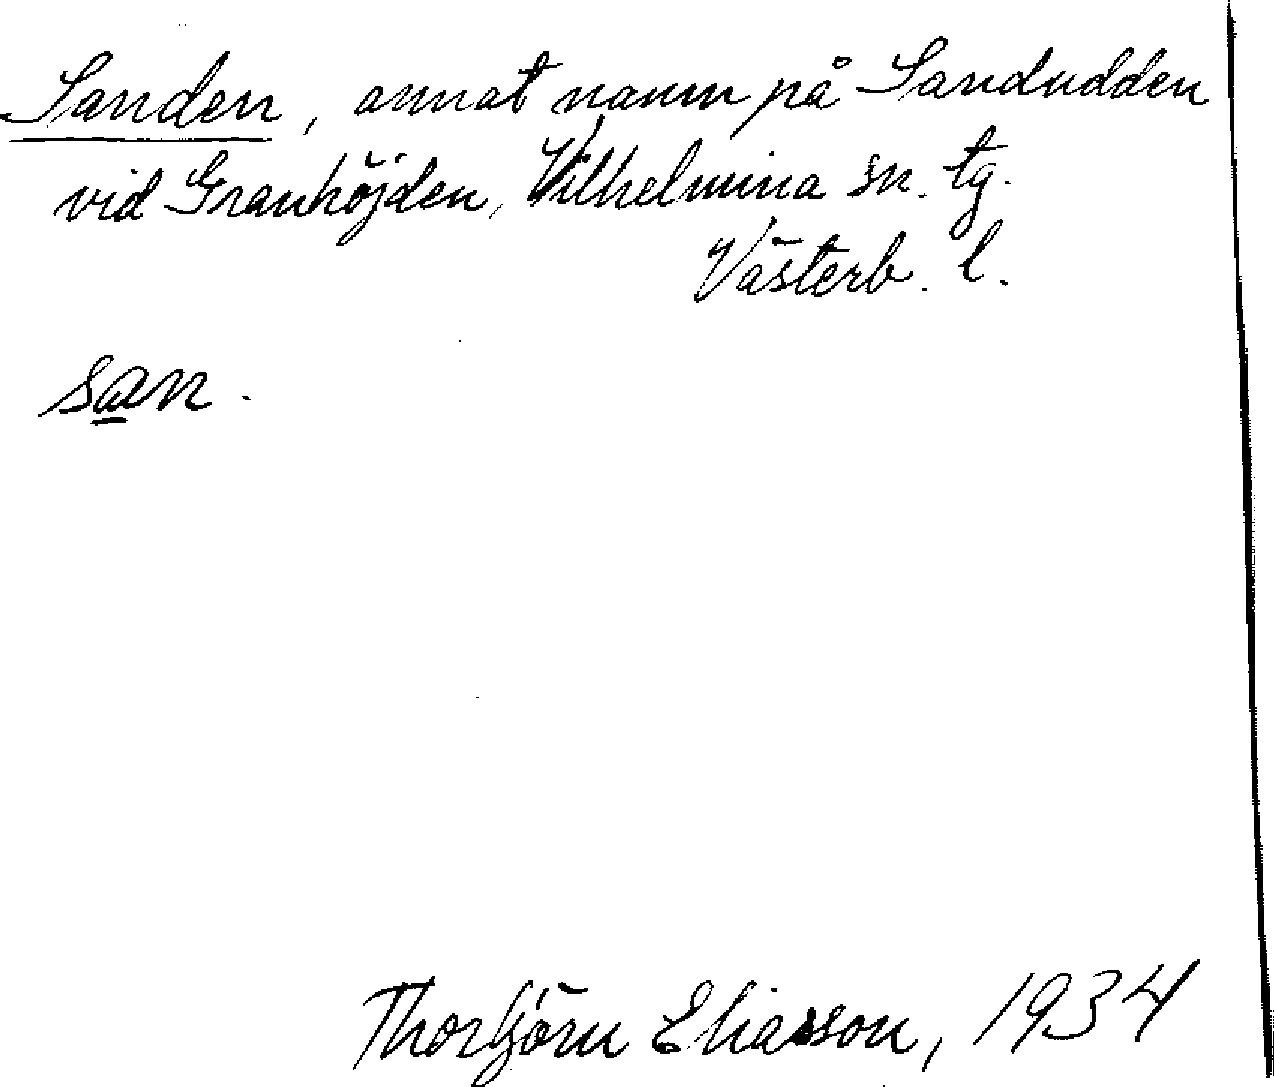 Sanden, annat namn på Sandudden
vid Granhöjden, Vilhelmina sn. tg.
Västerb. l.
san.
Thorbjörn Eliasson, 1934